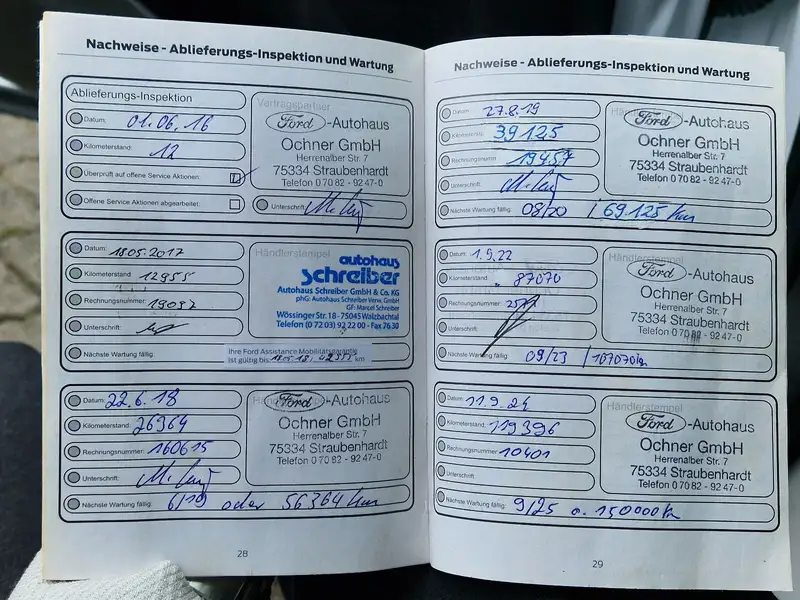 Nachweise - Ablieferungs-Inspektion und Wartung
Ablieferungs-Inspektion
Datum: 01.06.16
Kilometerstand: 12
Überprüft auf offene Service Aktionen:
Offene Service Aktionen abgearbeitet:
Vertragspartner
Ford-Autohaus
Ochner GmbH
Herrenalber Str. 7
75334 Straubenhardt
Telefon 0 70 82 - 92 47-0
Unterschrift:
Datum: 18.05.2017
Kilometerstand: 12955
Rechnungsnummer: 19087
Unterschrift:
Nächste Wartung fällig:
Händlerstempel
autohaus
schreiber
Autohaus Schreiber GmbH & Co. KG
phG: Autohaus Schreiber Verw. GmbH
GF: Marcel Schreiber
Wössinger Str. 18 - 75045 Walzbachtal
Telefon (0 72 03) 92 22 00 - Fax 76 30
Ihre Ford Assistance Mobilitätsgarantie
ist gültig bis km
Datum: 22.6.18
Kilometerstand: 26364
Rechnungsnummer: 160615
Unterschrift:
Nächste Wartung fällig: 6/19 oder 56364 km
Händlerstempel
Ford-Autohaus
Ochner GmbH
Herrenalber Str. 7
75334 Straubenhardt
Telefon 0 70 82 - 92 47-0
28
Nachweise - Ablieferungs-Inspektion und Wartung
Datum: 27.8.19
Kilometerstand: 39125
Rechnungsnummer: 19457
Unterschrift:
Nächste Wartung fällig: 08/20 / 69125 km
Händlerstempel
Ford-Autohaus
Ochner GmbH
Herrenalber Str. 7
75334 Straubenhardt
Telefon 0 70 82 - 92 47-0
Datum: 1.9.22
Kilometerstand: 87070
Rechnungsnummer:
Unterschrift:
Nächste Wartung fällig: 09/23 / 107070km
Händlerstempel
Ford-Autohaus
Ochner GmbH
Herrenalber Str. 7
75334 Straubenhardt
Telefon 0 70 82 - 92 47-0
Datum: 11.9.24
Kilometerstand: 119396
Rechnungsnummer: 10401
Unterschrift:
Nächste Wartung fällig: 9/25 o. 150000km
Händlerstempel
Ford-Autohaus
Ochner GmbH
Herrenalber Str. 7
75334 Straubenhardt
Telefon 0 70 82 - 92 47-0
29